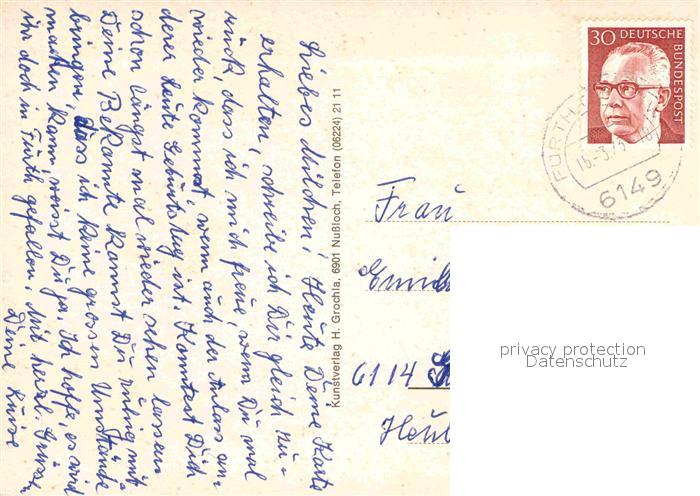 Liebes Milchen! Heute Deine Karte
erhalten, schreibe ich Dir gleich zu-
rück, dass ich mich freue, wenn Du mal
wieder kommst, wenn auch der Anlass an-
derer Leute Geburtstag ist. Konntest Dich
schon längst mal wieder sehen lassen.
Deine Bekannte kannst Du ruhig mit
bringen, dass ich keine grossen Umstände
machen kann, weisst Du ja. Ich hoffe, es wird
ihr doch in Fürth gefallen. Mit herzl. Grüssen
Deine Luise
Kunstverlag H. Grochla, 6901 Nußloch, Telefon (06224) 21 11
30 DEUTSCHE
BUNDESPOST
FÜRTH
15.-3.73
6149
Frau
6114
privacy protection
Datenschutz